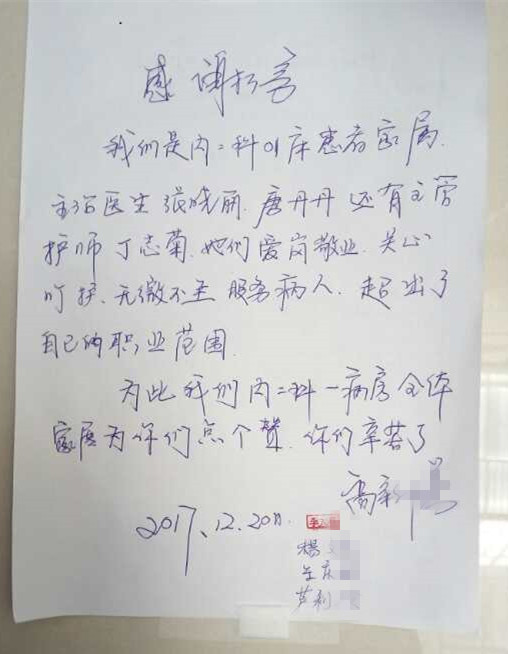 感谢
我们是内二科01床患者家属.
主治医生张晓丽.唐丹丹还有主管
护师丁志菊.她们爱岗敬业.关心
呵护、无微不至服务病人.超出了
自己的职业范围.
为此我们内二科一病房全体
家属为你们点个赞.你们辛苦了
高
2017.12.20日.
杨